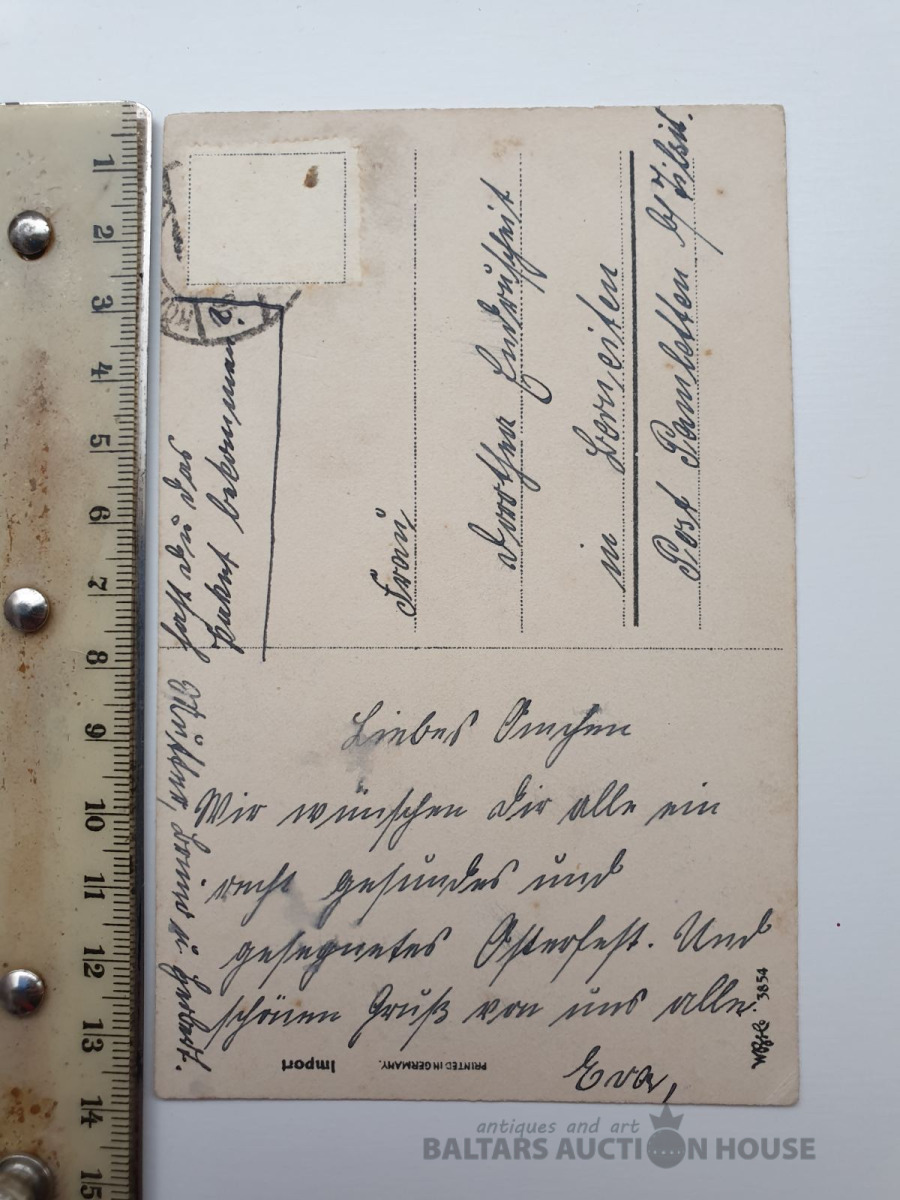 Liebes Omchen
Wir wünschen Dir alle ein
recht gesundes und
gesegnetes Osterfest. Und
schönen Gruß von uns alle.
Eva,
Mutter, u. Herbert.
Habt
Paket bekommen
Frau
Dorothea Endruscheit
in
Post b/ Tilsit.
Import
PRINTED IN GERMANY.
3854
1
2
3
4
5
6
7
8
9
10
11
12
13
14
15
antiques and art
BALTARS AUCTION HOUSE